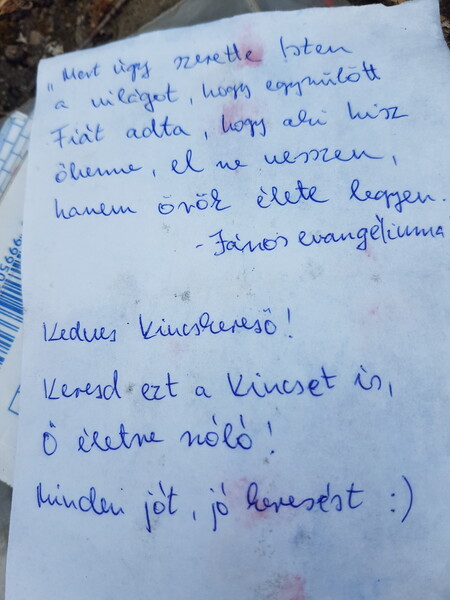 „Mert úgy szerette Isten
a világot, hogy egyszülött
Fiát adta, hogy aki hisz
őbenne, el ne vesszen,
hanem örök élete legyen.
- János evangéliuma
Kedves kincskereső!
Keresd ezt a kincset is,
Ő életre szóló!
Minden jót, jó keresést :)